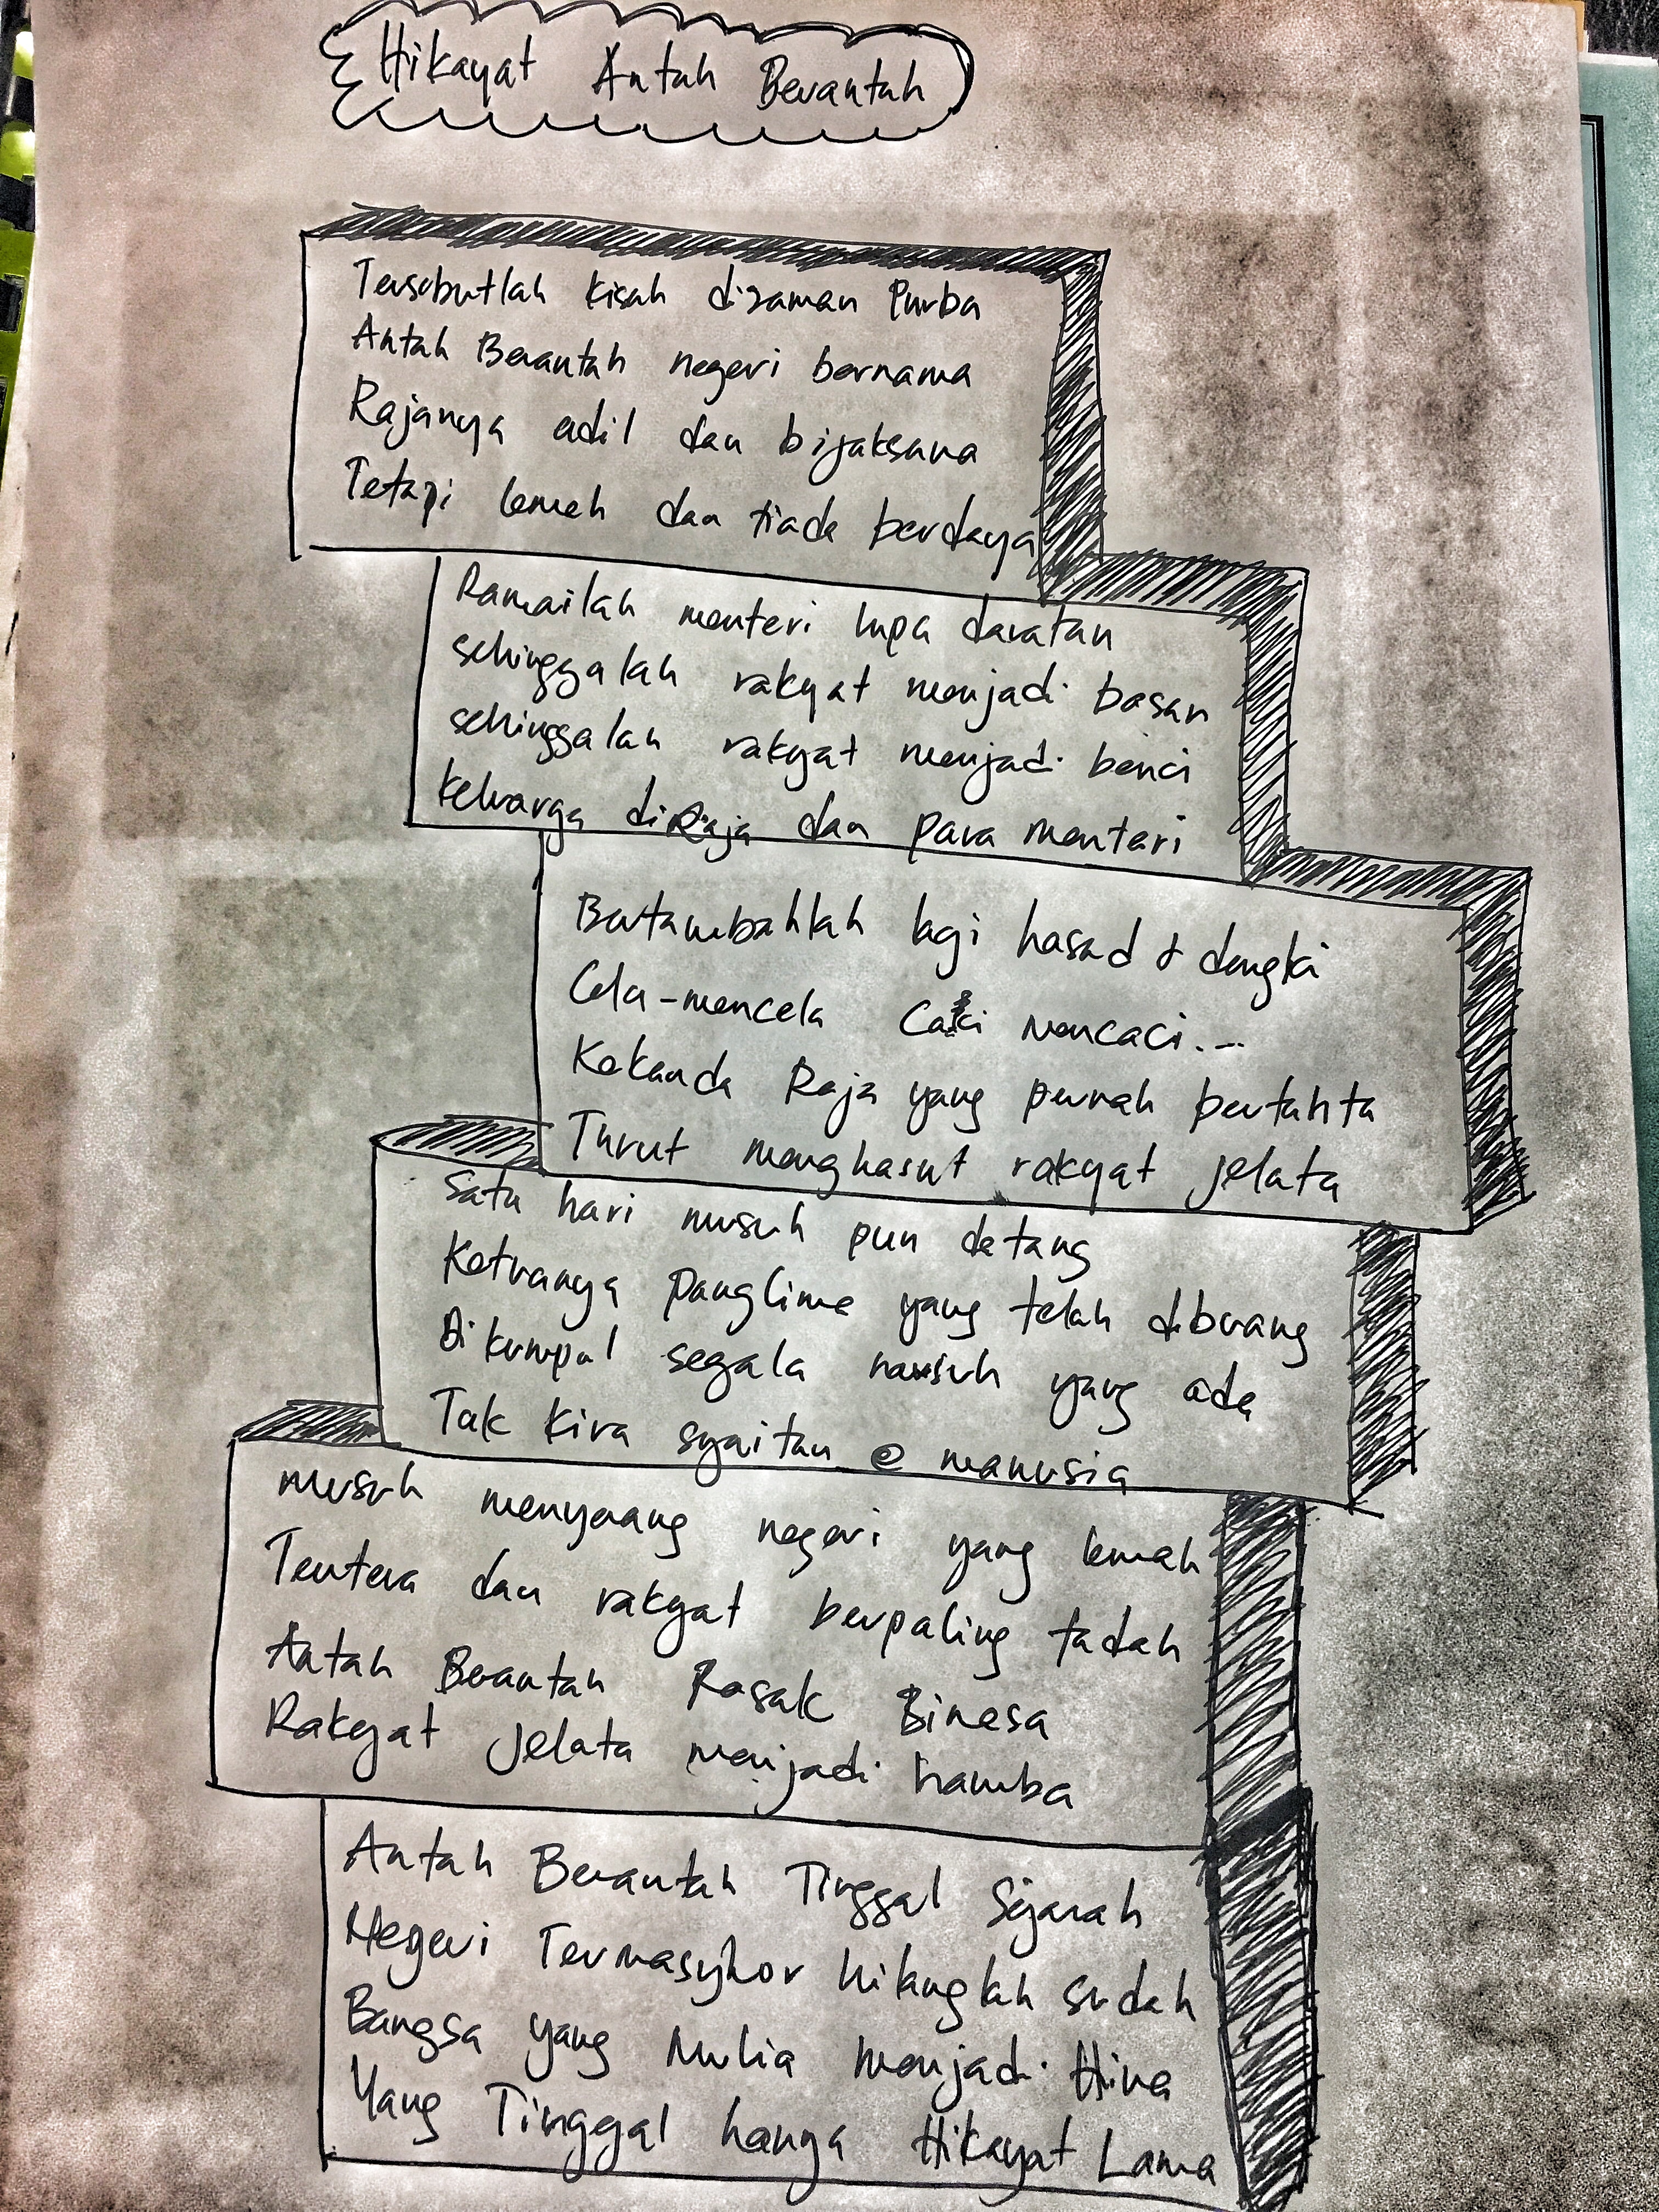 Hikayat Antah Berantah
Tersebutlah kisah dizaman Purba
Antah Berantah negeri bernama
Rajanya adil dan bijaksana
Tetapi lemah dan tiada berdaya
Ramailah menteri lupa daratan
sehinggalah rakyat menjadi bosan
sehinggalah rakyat menjadi benci
keluarga diRaja dan para menteri
Bertambahlah lagi hasad & dengki
Cela-mencela Caci mencaci...
Kekanda Raja yang pernah bertahta
Turut menghasut rakyat jelata
Satu hari musuh pun datang
Ketuanya Panglima yang telah dibuang
Dikumpul segala musuh yang ada
Tak kira syaitan @ manusia
musuh menyerang negeri yang lemah
Tentera dan rakyat berpaling tadah
Antah Berantah Rosak Binasa
Rakyat jelata menjadi hamba
Antah Berantah Tinggal Sejarah
Negeri Termasyhor hilanglah sudah
Bangsa yang Mulia menjadi Hina
Yang Tinggal hanya Hikayat Lama